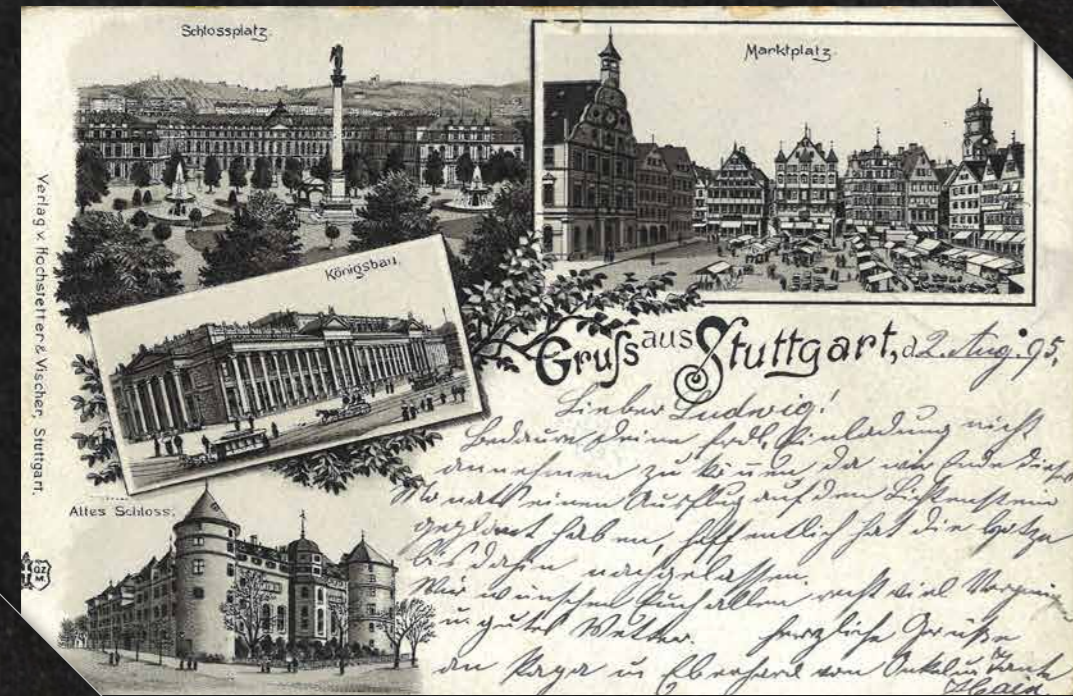 Schlossplatz.
Marktplatz.
Königsbau.
Altes Schloss.
Verlag v. Hochstetter & Vischer, Stuttgart.
Gruss aus Stuttgart, d. 2. Aug. 95.
Lieber Ludwig!
Bedaure Deine frdl. Einladung nicht
annehmen zu können, da wir Ende dieses
Monats einen Ausflug auf den Lichtenstein
geplant haben, hoffentlich hat die Hitze
bis dahin nachgelassen.
Wir wünschen Euch allen recht viel Vergnügen
u. gutes Wetter. Herzliche Grüße
an Papa u. Eberhard von Onkel u. Tante